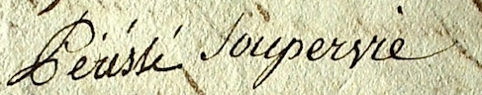 Périssé Soupervie